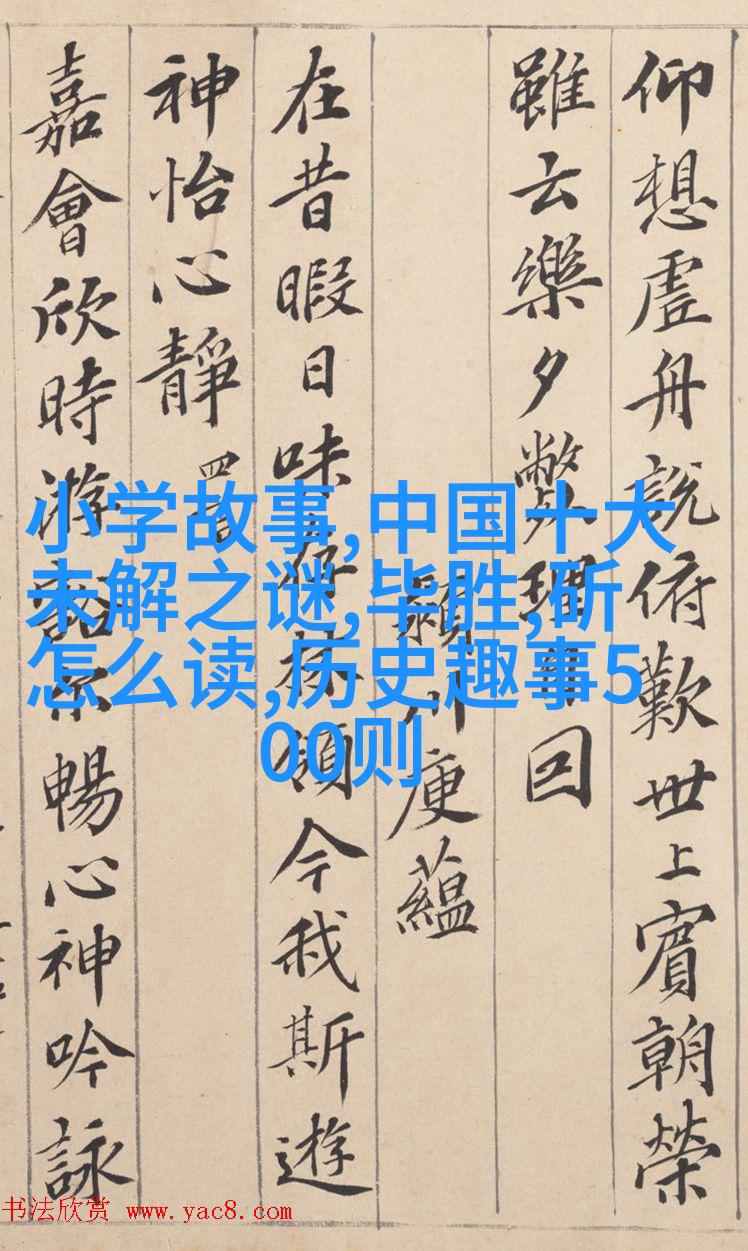 仰想虛舟說俯歎世上賓朝榮
雖云樂夕弊理自回
潁川庾蘊
在昔暇日味存林領今我斯遊
神怡心靜 四言
嘉會欣時游豁尔暢心神吟詠
小学故事,中国十大
未解之谜,毕胜,斫
怎么读,历史趣事5
00则
书法欣赏 www.yac8.com